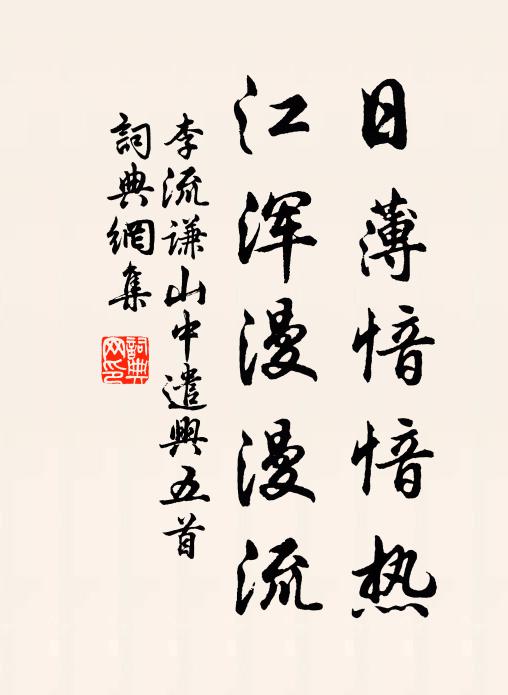 日薄愔愔热
江浑漫漫流
李流谦山中遣興五首
詞典網集
詞典網印